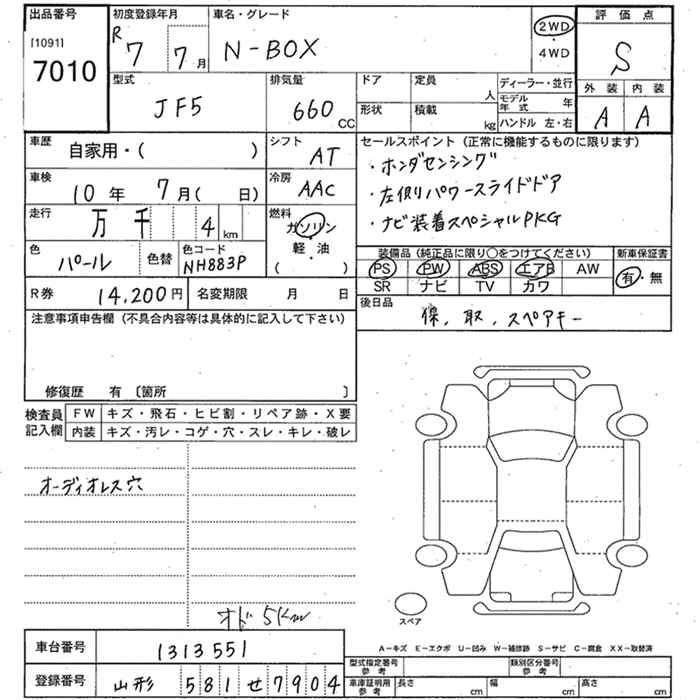 出品番号
[1091]
7010
初度登録年月
R 7 7 月
車名・グレード
N-BOX
2WD
・
4WD
評価点
S
外装 内装
A A
型式
JF5
排気量
660 CC
ドア
定員
人
形状
積載
kg
ディーラー・並行
モデル年式 年
ハンドル 左・右
車歴
自家用・( )
シフト
AT
車検
10年 7月( 日)
冷房
AAC
走行
万 千 4 km
燃料
ガソリン
・
軽・油
( )
色
パール
色替
色コード
NH883P
セールスポイント (正常に機能するものに限ります)
・ホンダセンシング
・左側パワースライドドア
・ナビ装着スペシャルPKG
装備品 (純正品に限り〇をつけてください)
新車保証書
PS PW ABS エアB AW
有・無
SR ナビ TV カワ
R券
14,200円
名変期限 月 日
後日品
保、取、スペアキー
注意事項申告欄 (不具合内容等は具体的に記入して下さい)
修復歴 有 〔箇所 〕
検査員記入欄
FW キズ・飛石・ヒビ割・リペア跡・X要
内装 キズ・汚レ・コゲ・穴・スレ・キレ・破レ
オーディオレス穴
オド 5Km
スペア
A−キズ E−エクボ U−凹み W−補修跡 S−サビ C−腐食 XX−取替済
車台番号
1313551
登録番号
山形 581 せ 7904
型式指定番号
参考
類別区分番号
参考
車庫証明用
参考
長さ cm
幅 cm
高さ cm